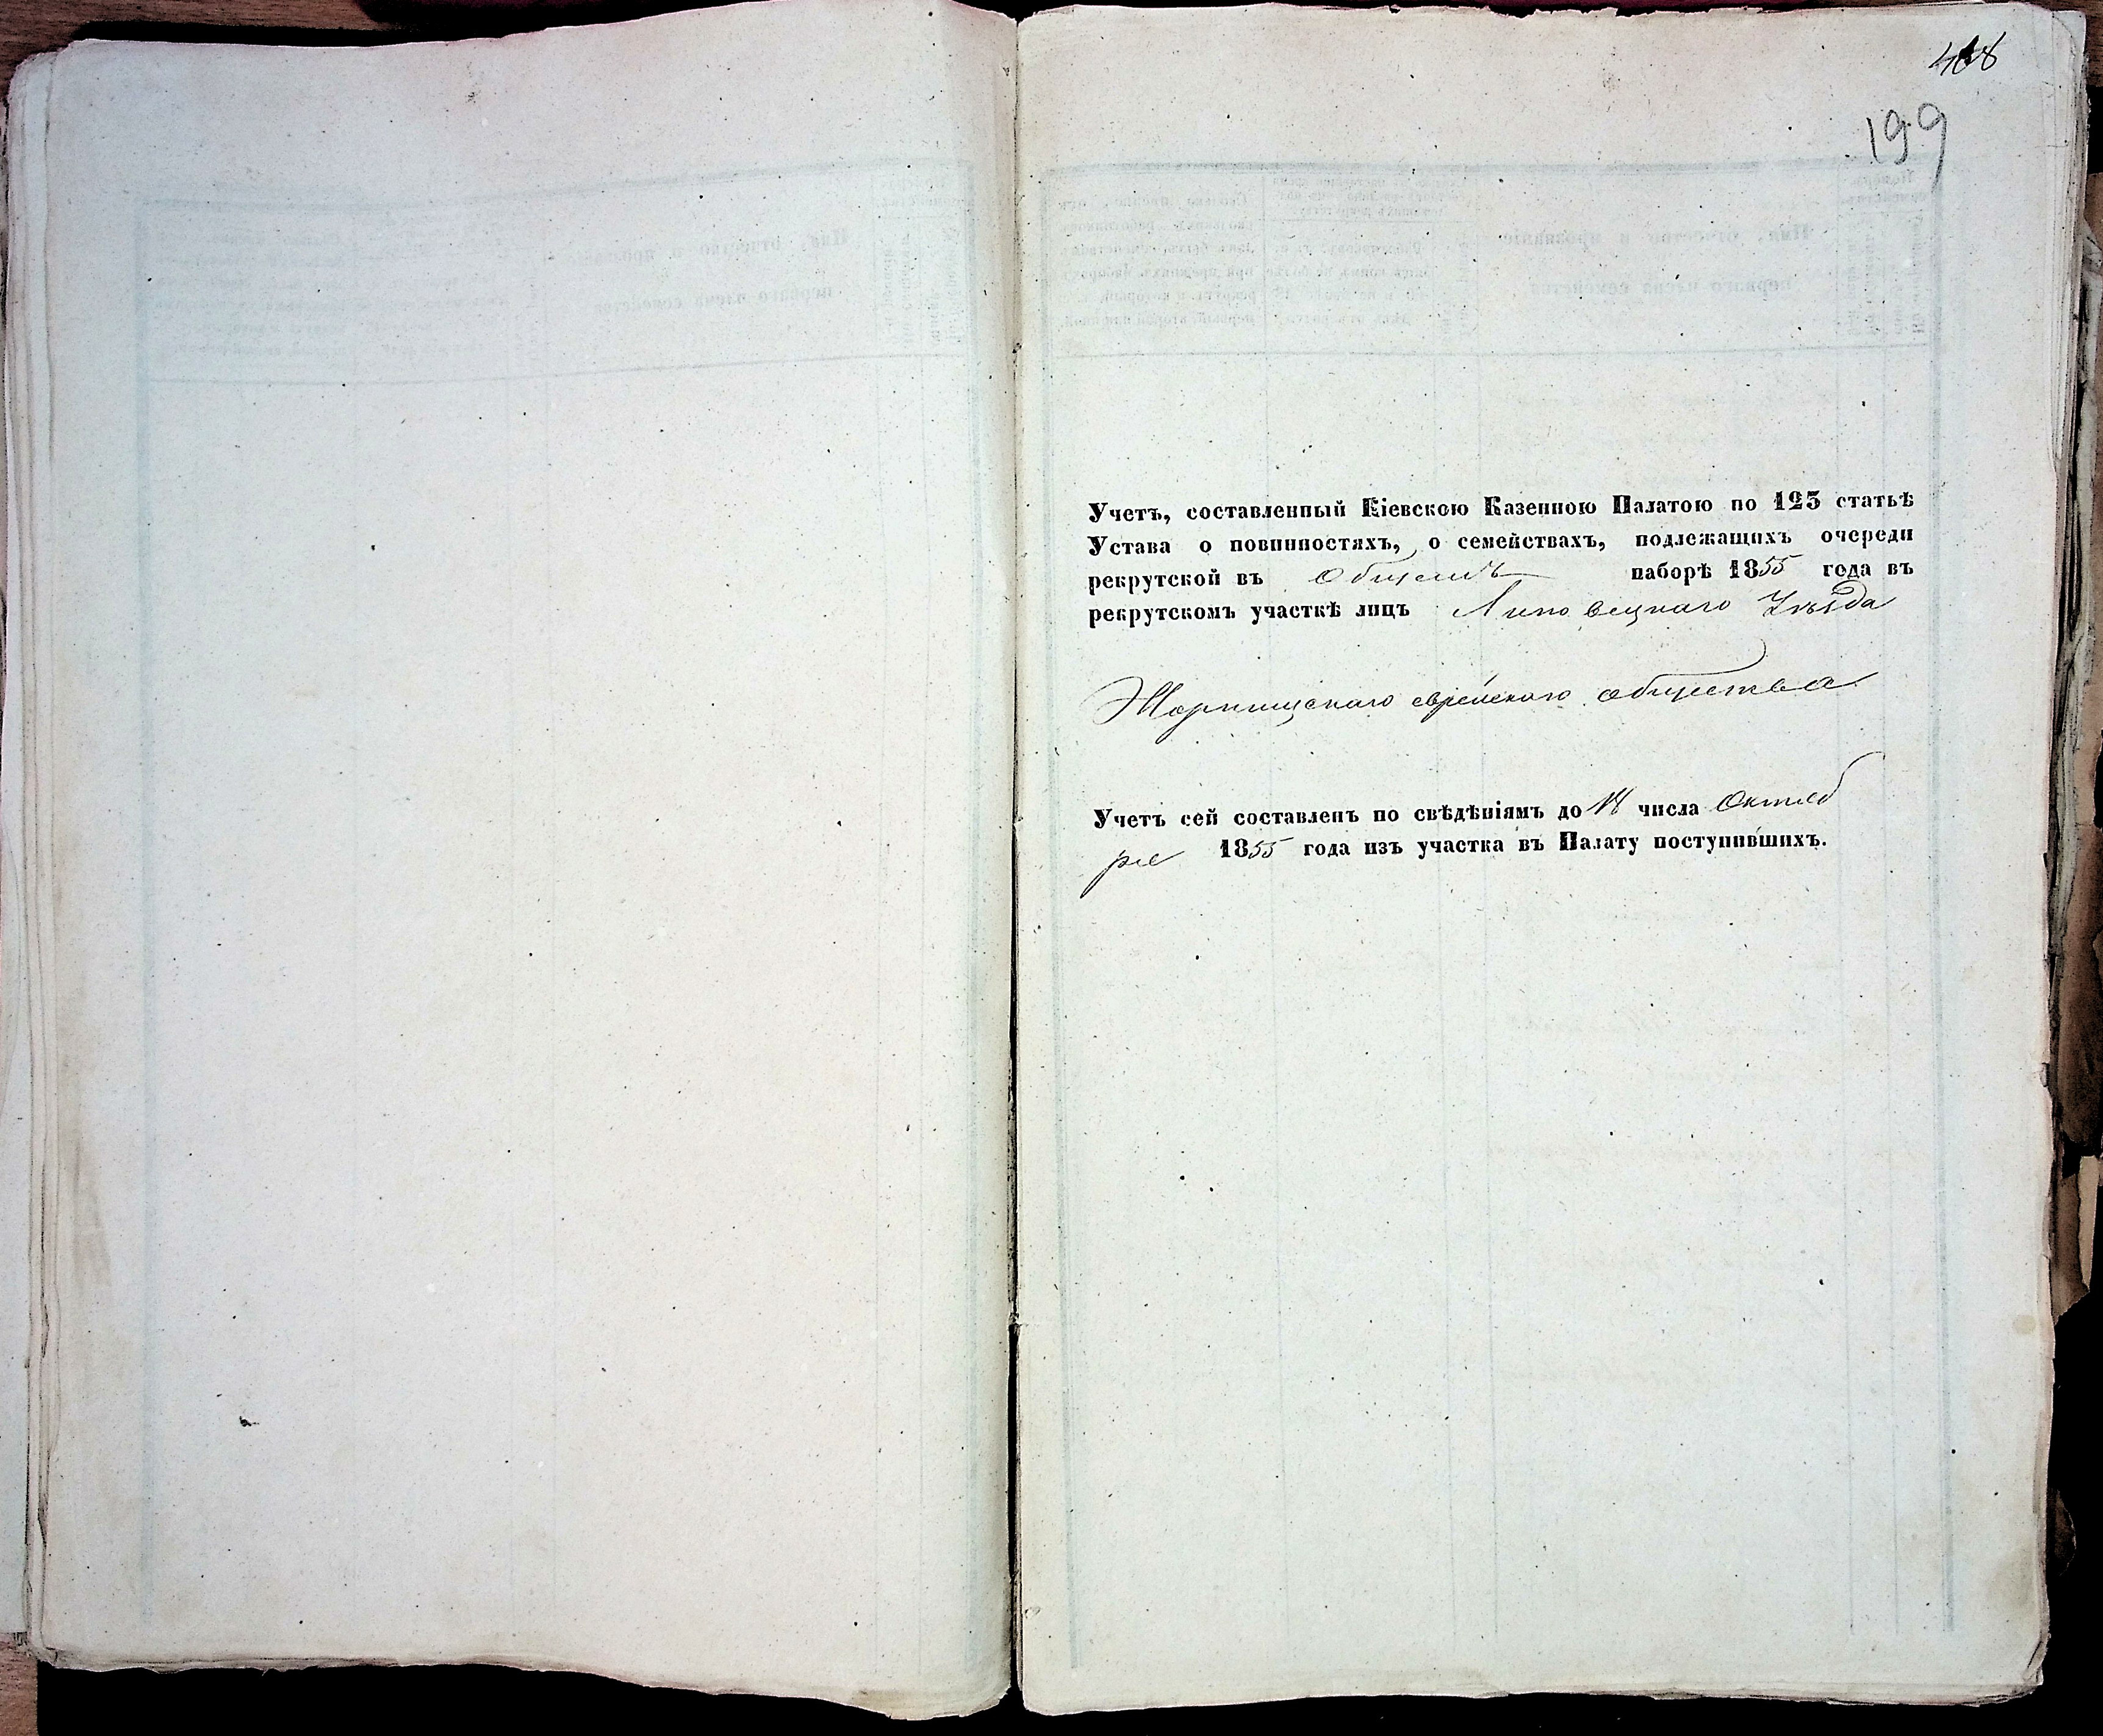 199
Учетъ, составленный Кіевскою Казенною Палатою по 125 статьѣ
Устава о повинностяхъ, о семействахъ, подлежащихъ очереди
рекрутской въ Общемъ наборѣ 1855 года въ
рекрутскомъ участкѣ лицъ Липовецкаго Уѣзда
Жорнищскаго еврейскаго общества
Учетъ сей составленъ по свѣдѣніямъ до 18 числа Октяб
ря 1855 года изъ участка въ Палату поступившихъ.